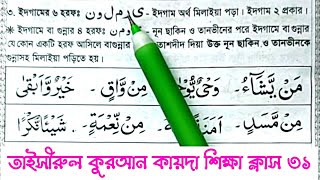 ৩. ইদগামের ৬ হরফঃ ي ر م ل و ن ইদগাম অর্থ মিলাইয়া পড়া। ইদগাম ২ প্রকার।
ইদগামে বা গুন্নার ৪ হরফঃ নুন ছাকিন ও তানভীনের পরে ইদগামে বা গুন্নার
যে কোন একটি হরফ আসিলে তাশদীদ দিয়া উক্ত নুন ছাকিন ও তানভীনকে
গুন্নাসহ মিলাইয়া পড়িতে হয়।
مَنْ يَّشَآءُ - وَحْيٌ يُّوْحٰى - مِنْ وَّاقٍ - خَيْرٌ وَّاَبْقٰى
مِنْ مَّسَدٍ - مِنْ نِّعْمَةٍ - شَيْئًا نُّكْرًا
তাইসীরুল কুরআন কায়দা শিক্ষা ক্লাস ৩১